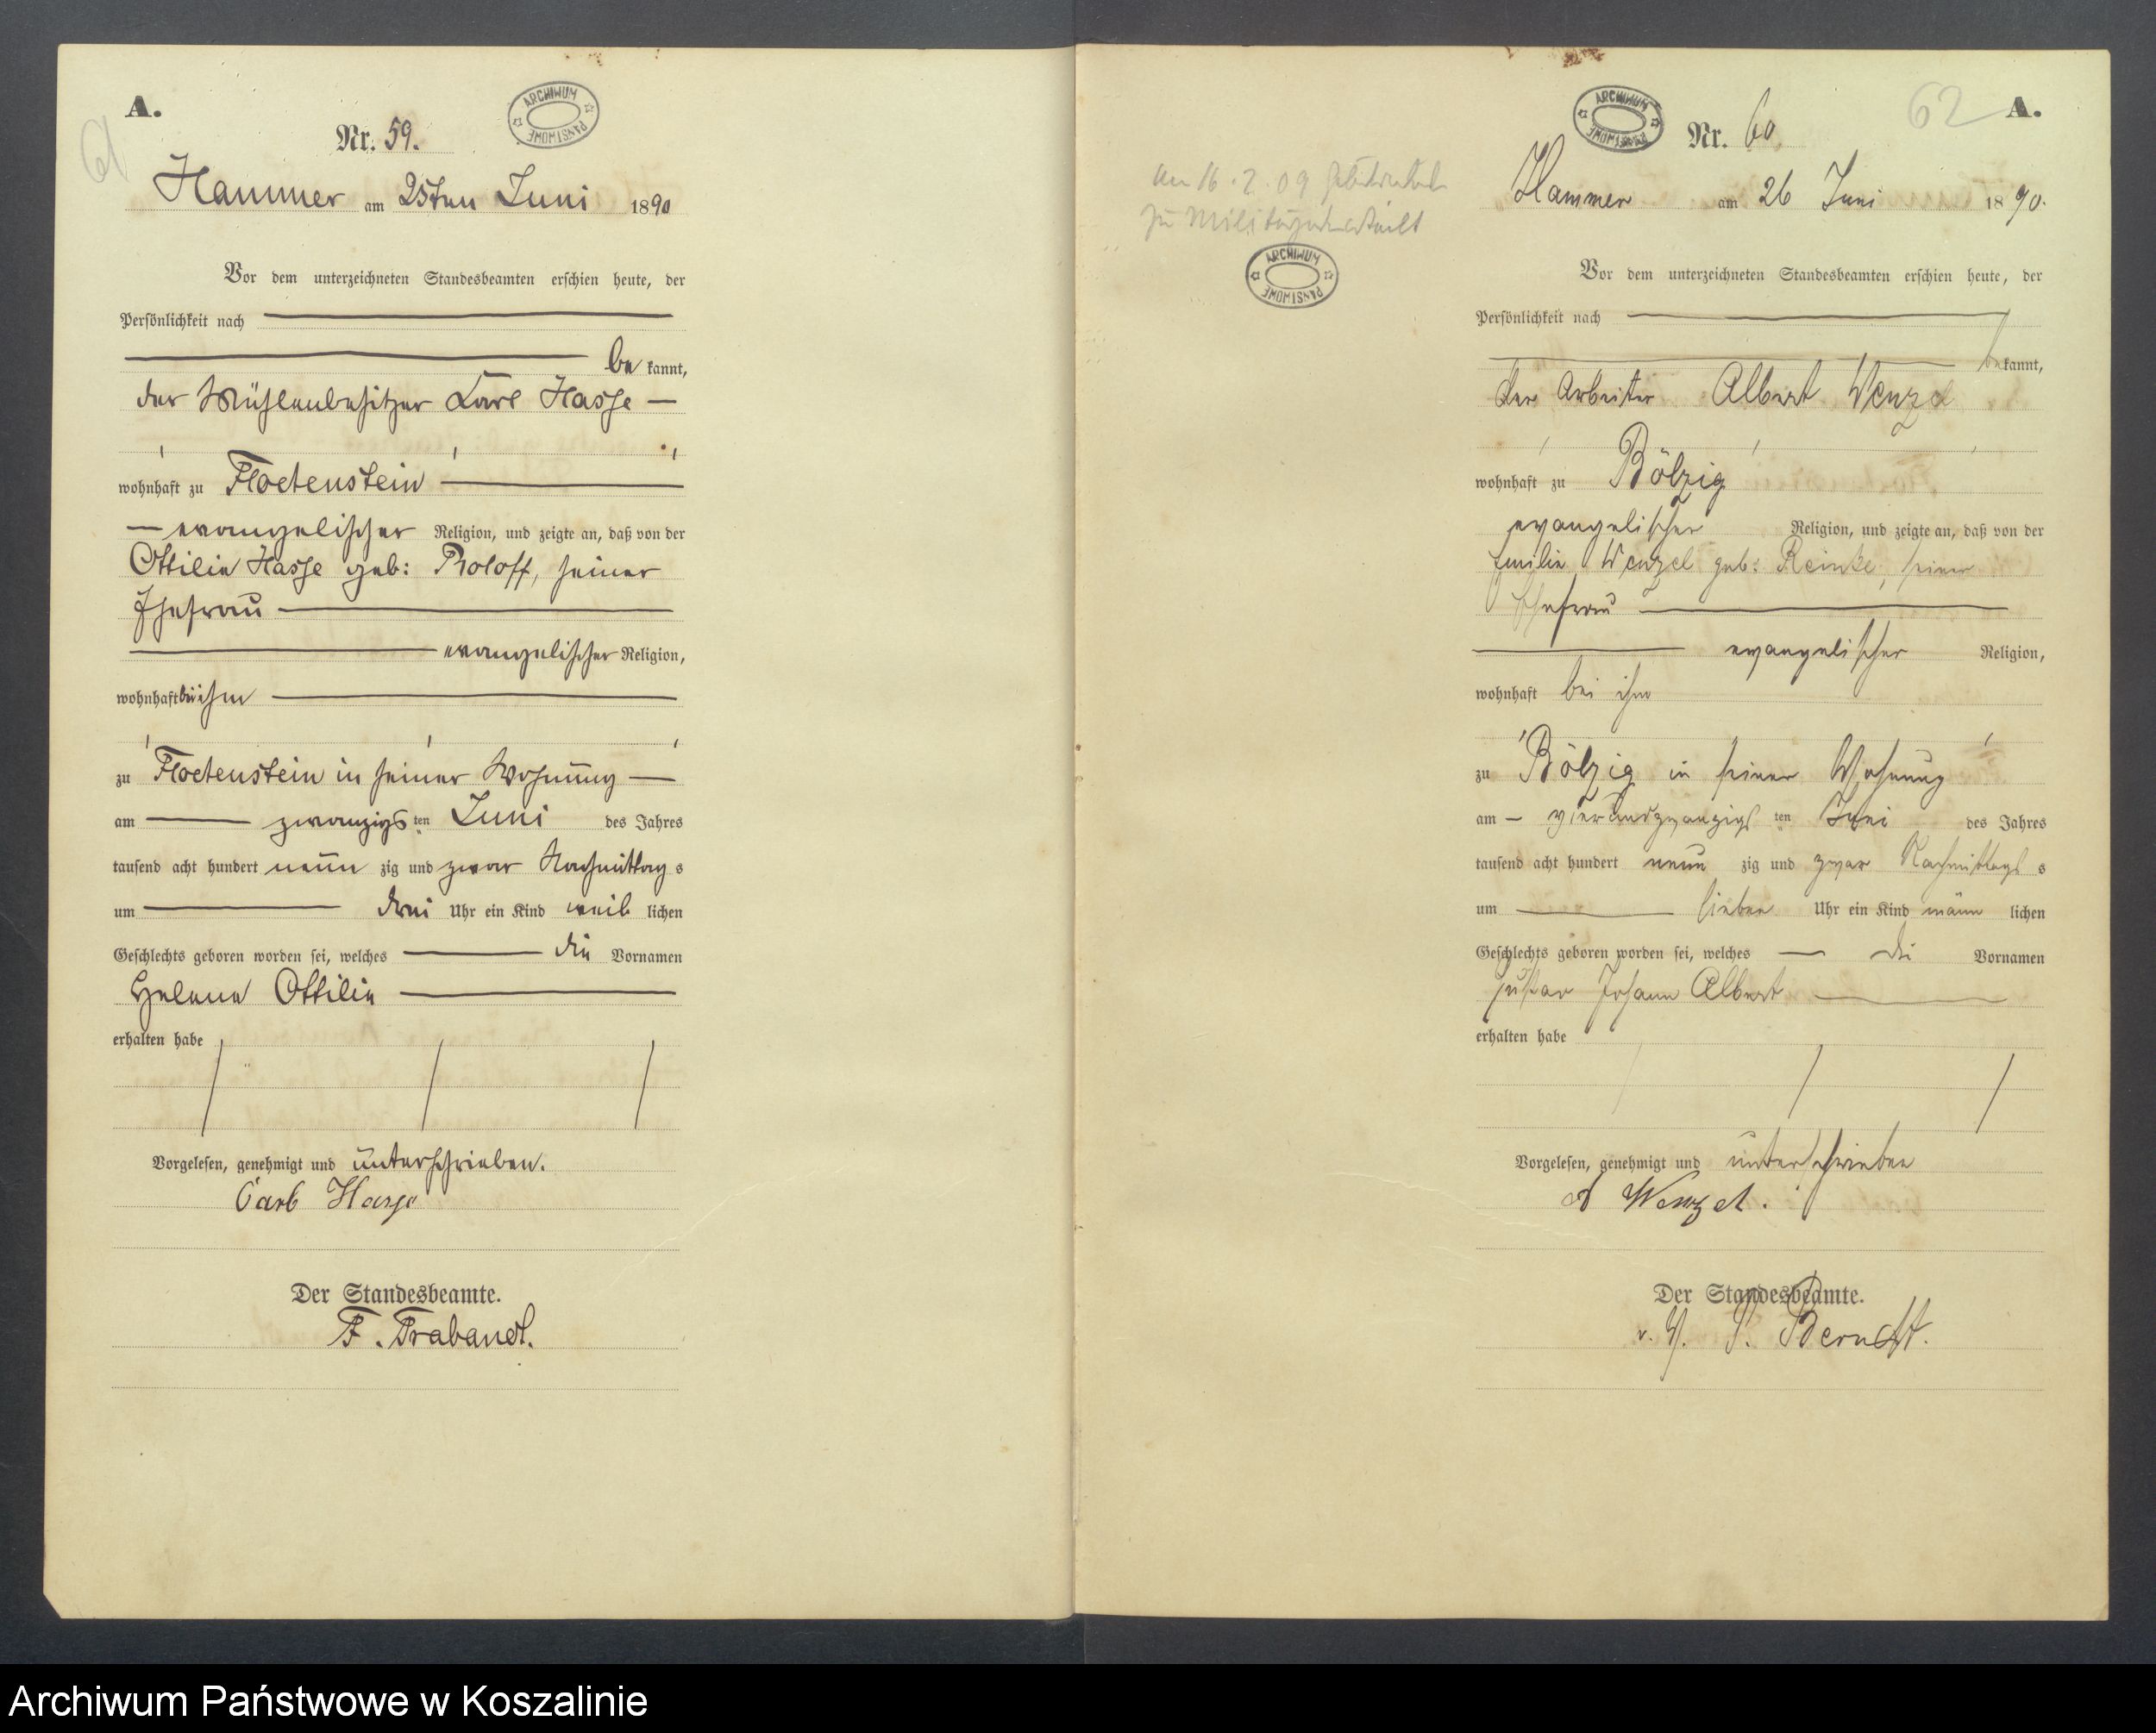 A.
61
Nr. 59.
ARCHIWUM PAŃSTWOWE
Hammer am 25ten Juni 1890
Vor dem unterzeichneten Standesbeamten erschien heute, der
Persönlichkeit nach
be kannt,
der Mühlenbesitzer Karl Hasse
wohnhaft zu Floetenstein
evangelischer Religion, und zeigte an, daß von der
Ottilie Hasse geb: Roloff, seiner
Ehefrau
evangelischer Religion,
wohnhaft bei ihm
zu Floetenstein in seiner Wohnung
am zwanzigsten Juni des Jahres
tausend acht hundert neun zig und zwar Nachmittag s
um drei Uhr ein Kind weib lichen
Geschlechts geboren worden sei, welches die Vornamen
Helene Ottilie
erhalten habe
Vorgelesen, genehmigt und unterschrieben.
Carl Hasse
Der Standesbeamte.
F. Trabandt.
62
A.
ARCHIWUM PAŃSTWOWE
Nr. 60.
Am 16.2.09
zu Militär
ARCHIWUM PAŃSTWOWE
Hammer am 26 Juni 1890.
Vor dem unterzeichneten Standesbeamten erschien heute, der
Persönlichkeit nach
be kannt,
der Arbeiter Albert Wenzel
wohnhaft zu Bölzig
evangelischer Religion, und zeigte an, daß von der
Emilie Wenzel geb: Reinke, seiner
Ehefrau
evangelischer Religion,
wohnhaft bei ihm
zu Bölzig in seiner Wohnung
am vierundzwanzigsten Juni des Jahres
tausend acht hundert neun zig und zwar Nachmittags s
um sieben Uhr ein Kind männ lichen
Geschlechts geboren worden sei, welches die Vornamen
Gustav Johann Albert
erhalten habe
Vorgelesen, genehmigt und unterschrieben
A Wenzel.
Der Standesbeamte.
Berndt.
Archiwum Państwowe w Koszalinie